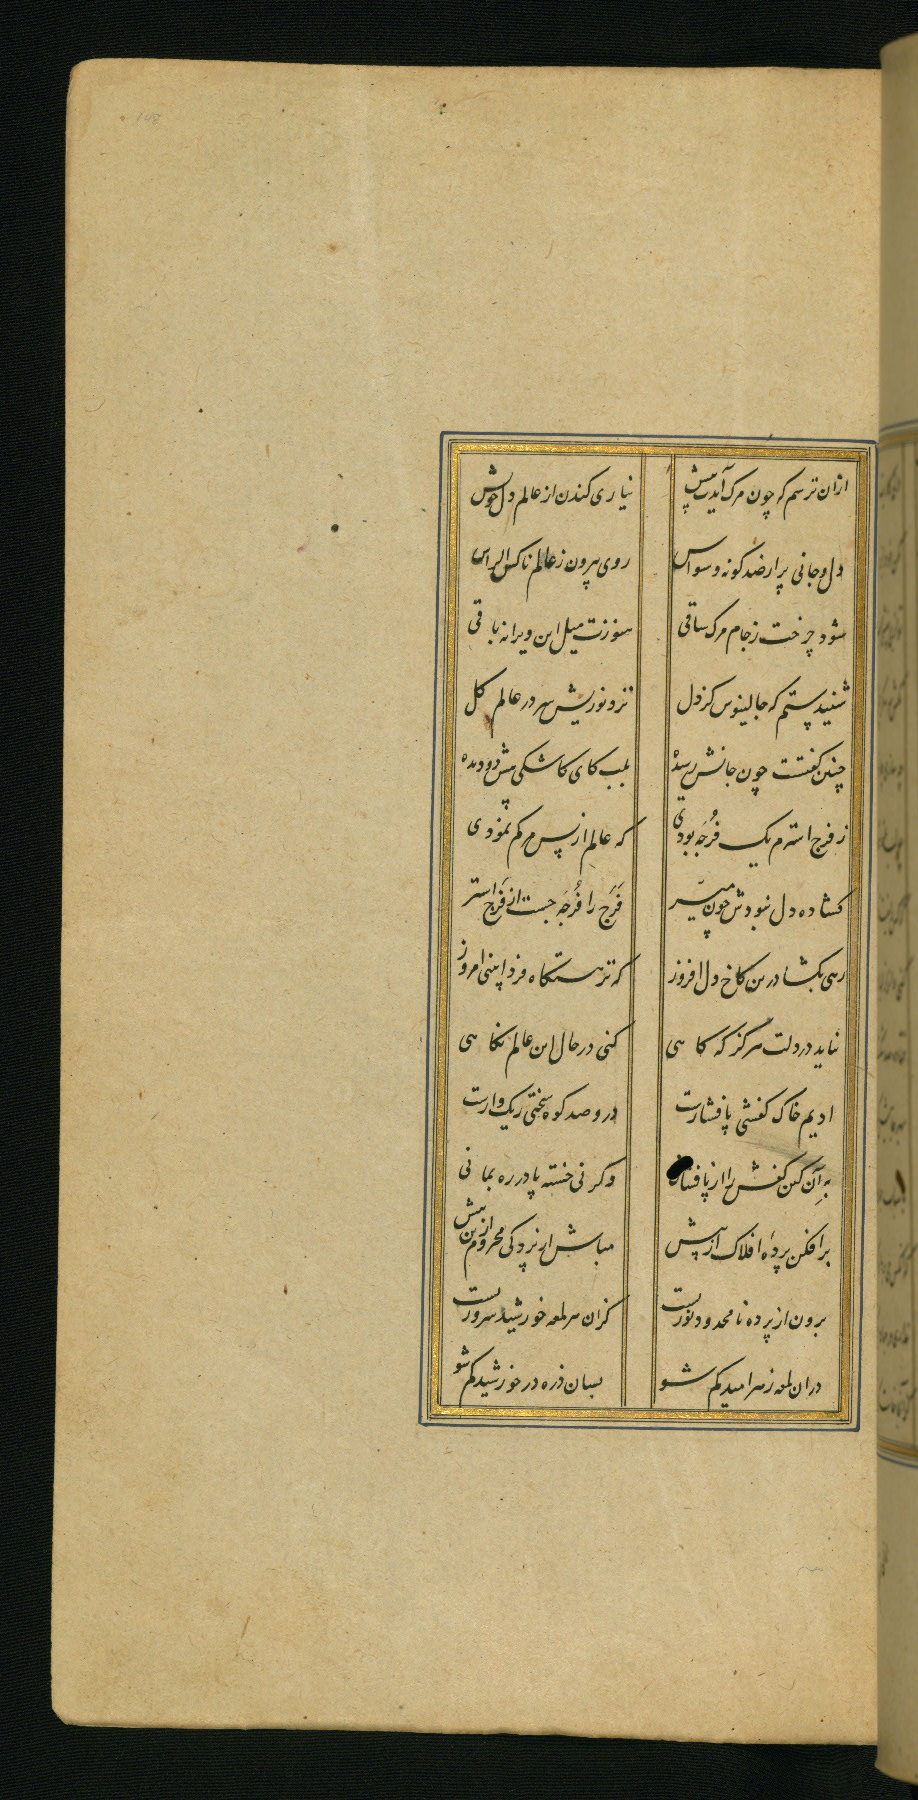 ازان ترسم که چون مرک آیدت پیش نیاری کندن از عالم دل خویش
دل و جانی پر از صد کونه وسواس روی بیرون ز عالم ناکس الراس
شود چرخت ز جام مرک ساقی هنوزت میل این ویرانه باقی
شنیدستم که جالینوس کز دل نزد نوریش سر در عالم کل
چنین کفتست چون جانش رسیده بلب کای کاشکی پیش دو دیده
ز فرج استرم یک فُرجَه بودی که عالم از پس مرکم نمودی
کشاده دل نبودش چون میسّر فَرَج را فُرجَه جست از فَرج استر
رهی بکشا درین کاخ دل افروز که نزهتکاه فردا بینی امروز
نیاید در دلت هرکز که کاهی کنی در حال این عالم نکاهی
ادیم خاک کفشی پا فشارت درو صد کوه سختی ریک وارت
بِه آن کین کفش را از پا فشانی وکرنی خسته پا در ره بمانی
برافکن پردهٔ افلاک از پیش مباش از نزدکی محروم ازین بیش
برون از پرده نامحدود نوریست کزان هر لمعه خورشید سروریست
دران لمعه ز سر امید کم شو بسان ذره در خورشید کم شو